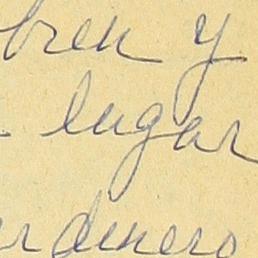 bren y
lugar
er dinero